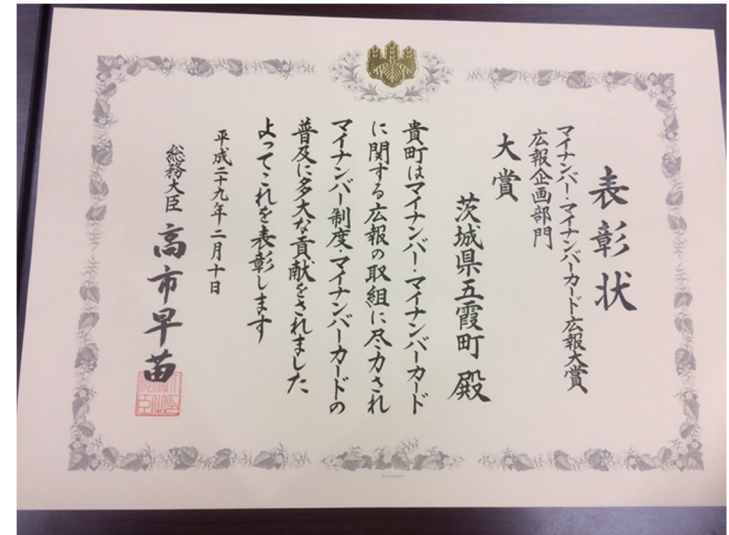 表彰状
マイナンバー・マイナンバーカード広報大賞
広報企画部門
大賞
茨城県五霞町殿
貴町はマイナンバー・マイナンバーカード
に関する広報の取組に尽力され
マイナンバー制度・マイナンバーカードの
普及に多大な貢献をされました
よってこれを表彰します
平成二十九年二月十日
総務大臣 高市早苗